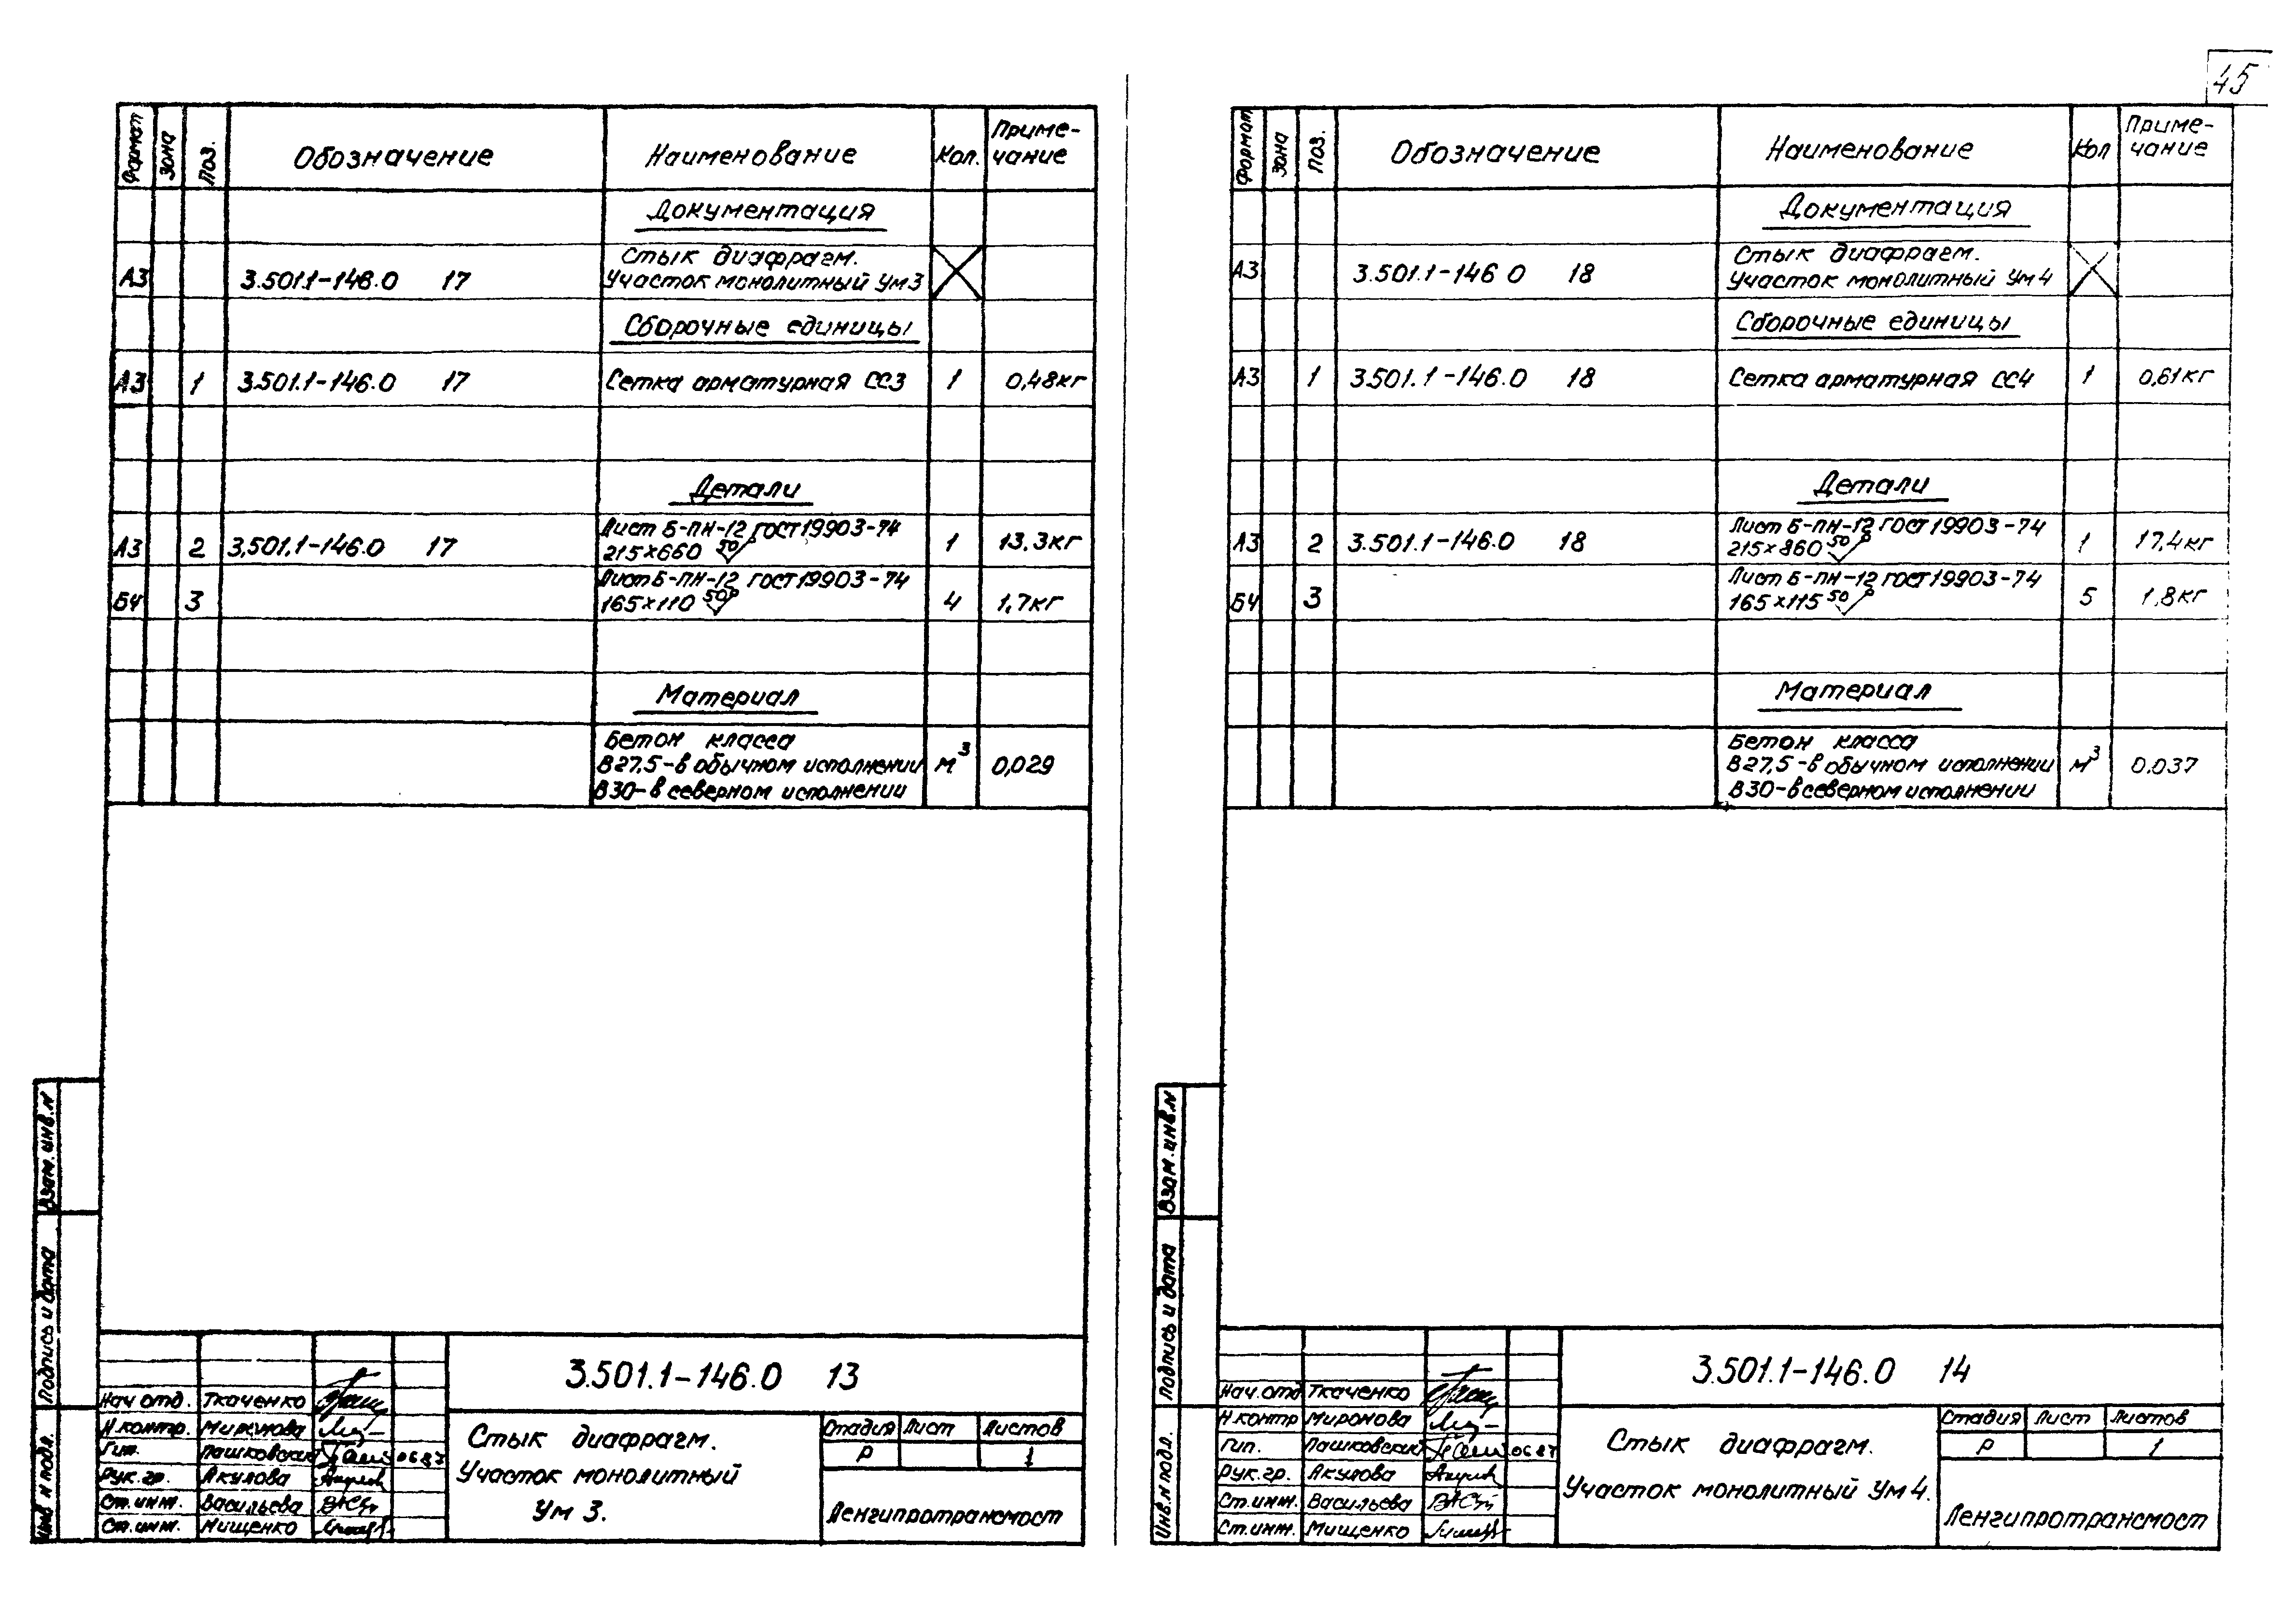 45
Формат Зона Поз. Обозначение Наименование Кол. Приме-
чание
Документация
А3 3.501.1-146.0 17 Стык диафрагм.
Участок монолитный Ум3
Сборочные единицы
А3 1 3.501.1-146.0 17 Сетка арматурная СС3 1 0,48кг
Детали
А3 2 3.501.1-146.0 17 Лист Б-ПН-12 ГОСТ 19903-74
215×660 50 1 13,3кг
БЧ 3 Лист Б-ПН-12 ГОСТ 19903-74
165×110 50 4 1,7кг
Материал
Бетон класса
В27,5-в обычном исполнении м³ 0,029
В30-в северном исполнении
Взам. инв. N
Подпись и дата
Инв N подл.
3.501.1-146.0 13
Нач. отд. Ткаченко
Н.контр. Миронова
Гип. Пашковский 06.87
Рук. гр. Акулова
Ст. инж. Васильева
Ст. инж. Мищенко
Стык диафрагм.
Участок монолитный
Ум 3.
Стадия Лист Листов
Р 1
Ленгипротрансмост
Формат Зона Поз. Обозначение Наименование Кол Приме-
чание
Документация
А3 3.501.1-146 0 18 Стык диафрагм.
Участок монолитный Ум4
Сборочные единицы
А3 1 3.501.1-146.0 18 Сетка арматурная СС4 1 0,61кг
Детали
А3 2 3.501.1-146.0 18 Лист Б-ПН-12 ГОСТ 19903-74
215×860 50 1 17,4кг
БЧ 3 Лист Б-ПН-12 ГОСТ 19903-74
165×115 50 5 1,8кг
Материал
Бетон класса
В27,5-в обычном исполнении м³ 0.037
В30-в северном исполнении
Взам. инв. N
Подпись и дата
Инв. N подл.
3.501.1-146.0 14
Нач. отд Ткаченко
Н.контр Миронова
Гип. Пашковский 06 87
Рук. гр. Акулова
Ст. инж. Васильева
Ст. инж. Мищенко
Стык диафрагм.
Участок монолитный Ум 4.
Стадия Лист Листов
Р 1
Ленгипротрансмост